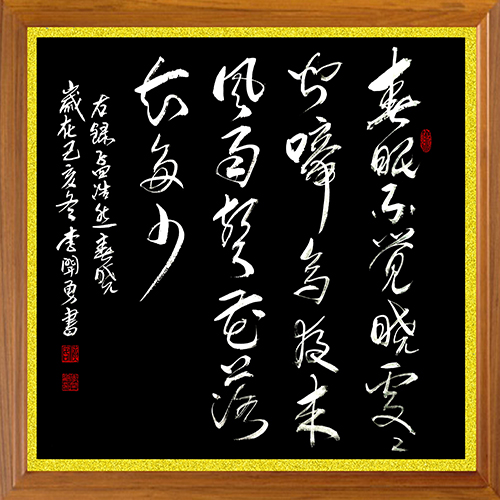 春眠不觉晓處々
闻啼鸟夜来
风雨聲花落
知多少
右録孟浩然春晓
歲在己亥冬李開勇書